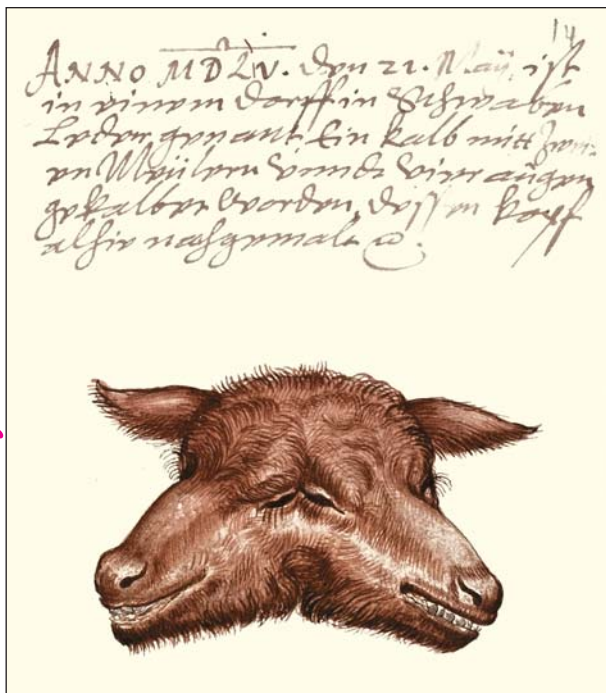 14
ANNO MDLV. den 21. Maij, ist
in einem dorff in Schwaben
Leder genant, Ein kalb mitt Zwei-
en Meülern Vnndt Vier augen
gekalbet worden, dessen kopff
alhie nachgemalt